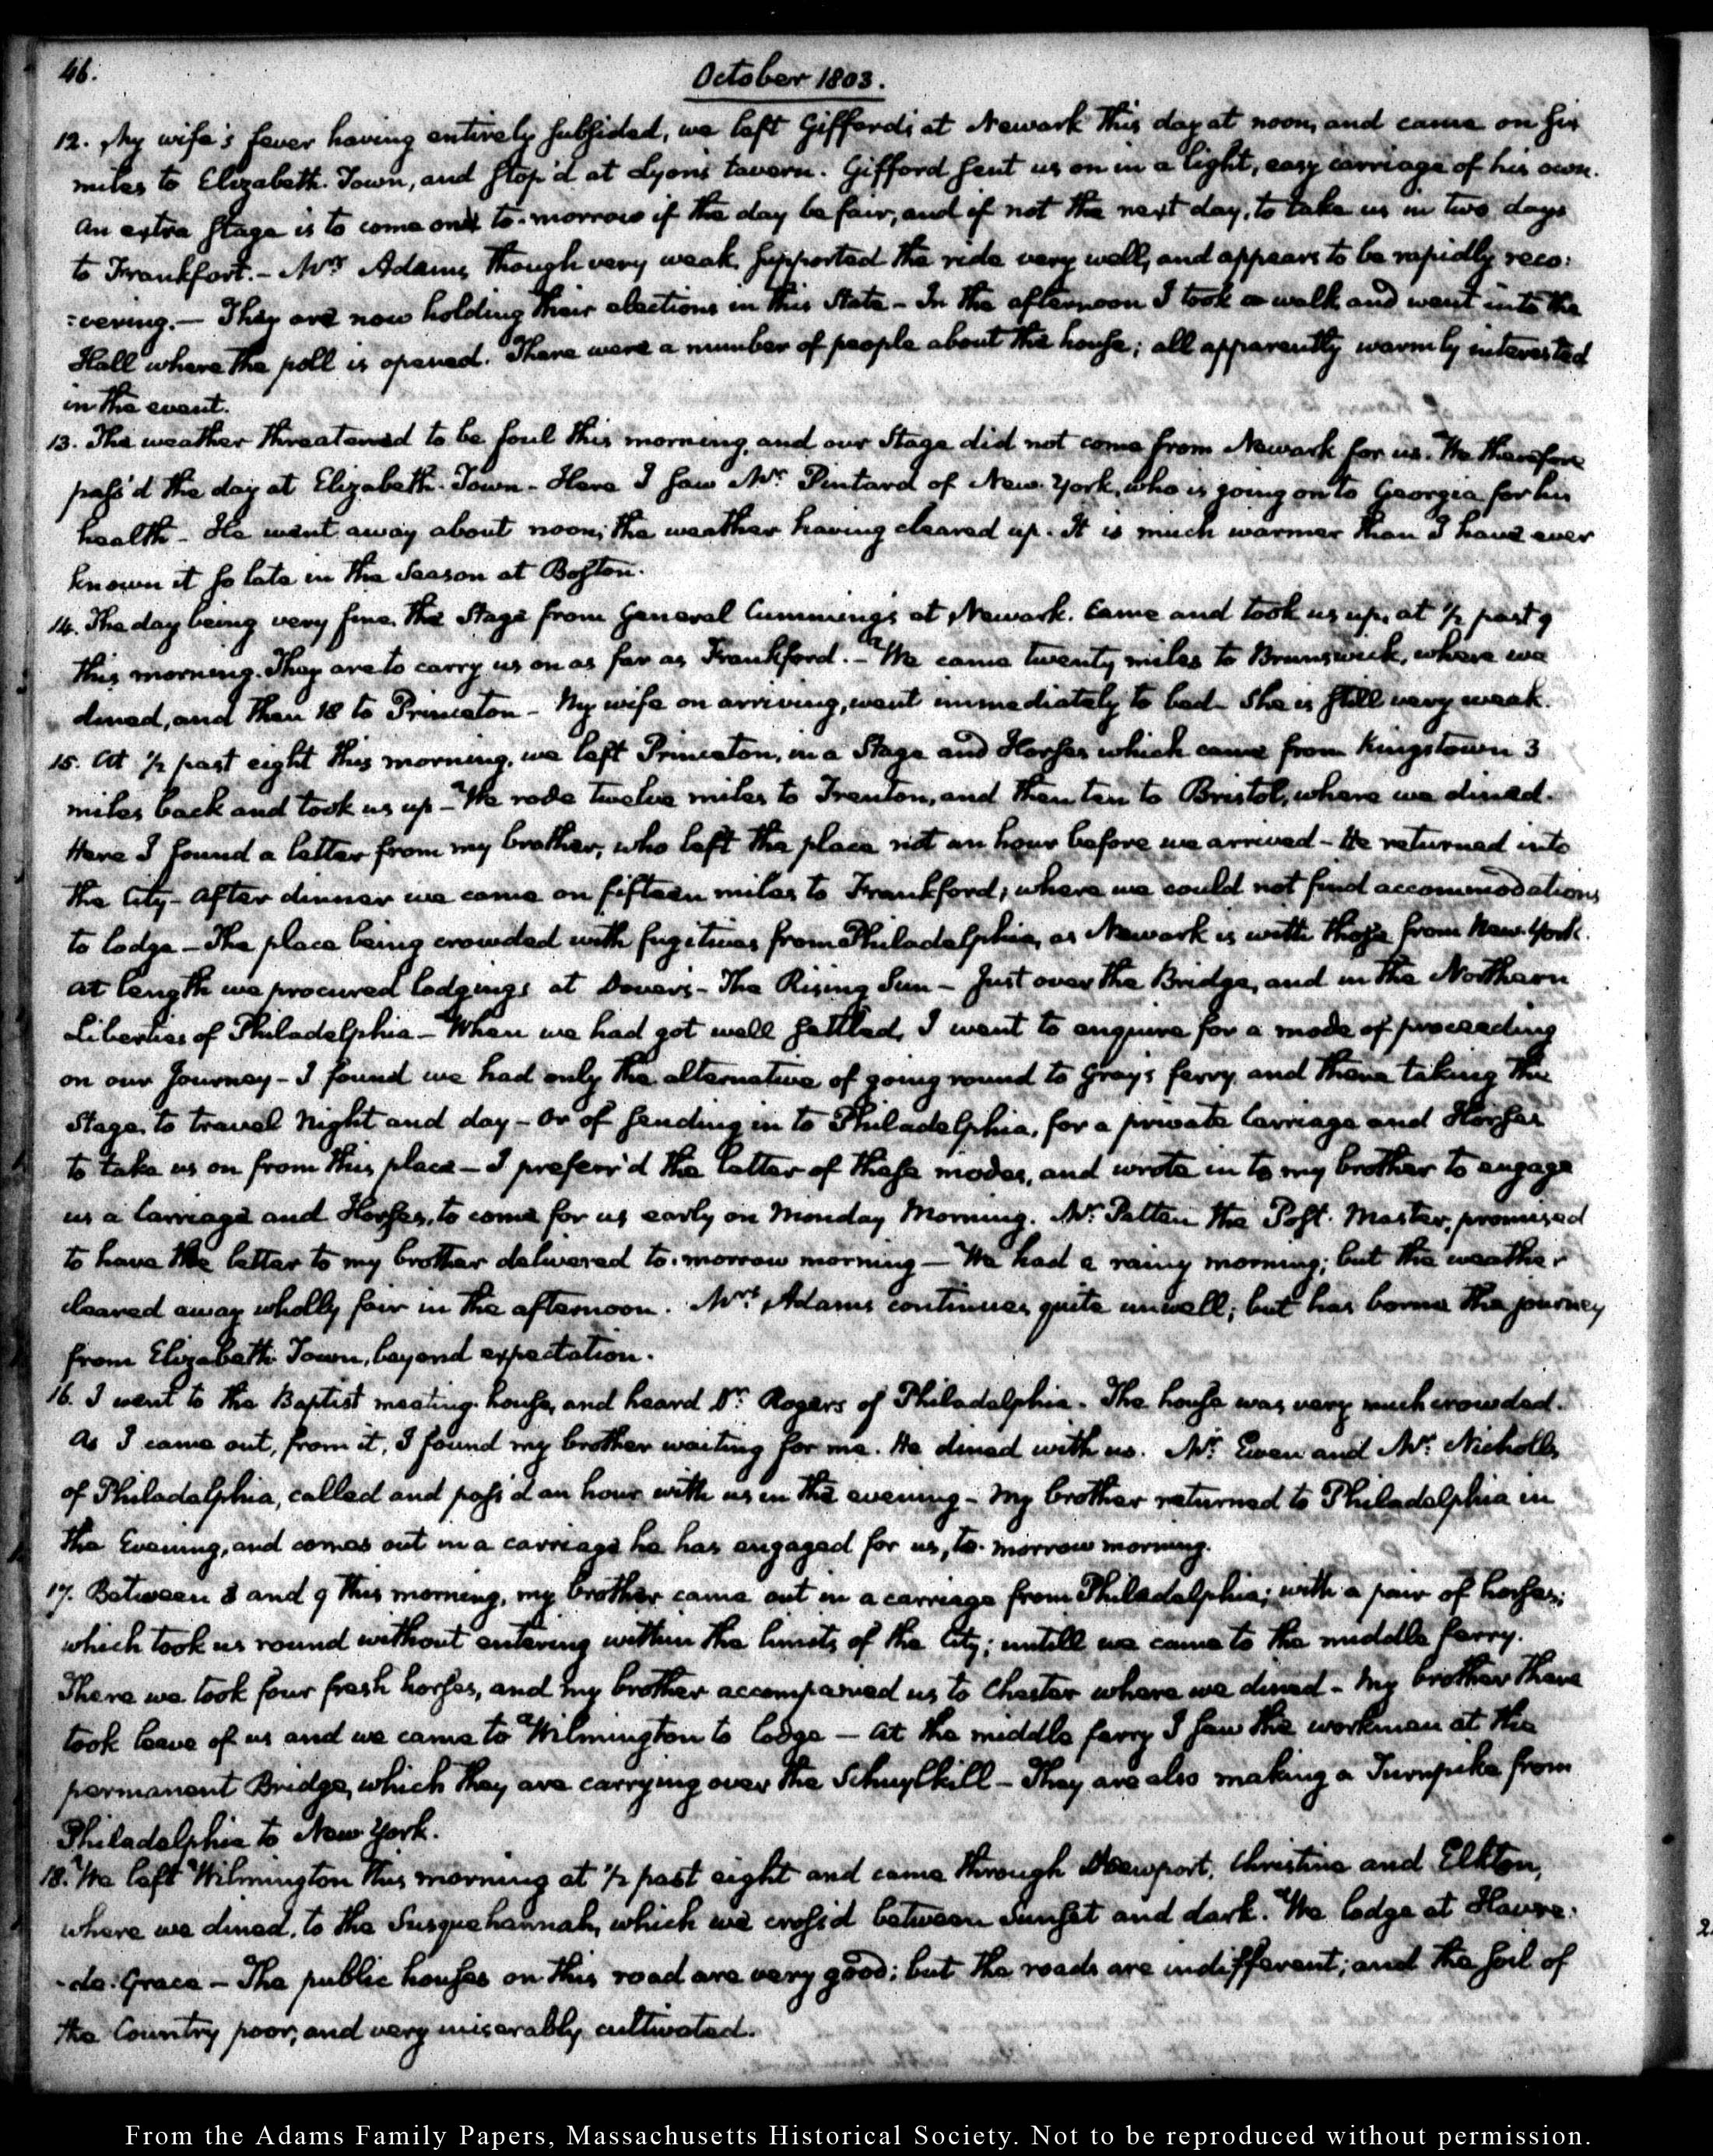 46.
October 1803.
12. My wife's fever having entirely subsided, we left Gifford's at Newark this day at noon, and came on six
miles to Elizabeth-Town, and stop'd at Lyons tavern. Gifford sent us on in a light, easy carriage of his own.
An extra stage is to come on to-morrow if the day be fair, and if not the next day, to take us in two days
to Frankfort.- Mrs. Adams though very weak, supported the ride very well, and appears to be rapidly reco:
:vering.— They are now holding their elections in this State- In the afternoon I took a walk and went into the
Hall where the poll is opened. There were a number of people about the house; all apparently warmly interested
in the event.
13. The weather threatened to be foul this morning, and our Stage did not come from Newark for us. We therefore
pass'd the day at Elizabeth-Town- Here I saw Mr. Pintard of New-York, who is going on to Georgia for his
health- He went away about noon; the weather having cleared up. It is much warmer than I have ever
known it so late in the Season at Boston.
14. The day being very fine, the Stage from General Cumming's at Newark. Came and took us up, at ½ past 9
this morning. They are to carry us on as far as Frankford.- We came twenty miles to Brunswick, where we
dined, and then 18 to Princeton- My wife on arriving, went immediately to bed- She is still very weak.
15. At ½ past eight this morning, we left Princeton, in a Stage and Horses which came from Kingstown 3
miles back and took us up- We rode twelve miles to Trenton, and then ten to Bristol, where we dined.
Here I found a letter from my brother, who left the place not an hour before we arrived- He returned into
the City- After dinner we came on fifteen miles to Frankford; where we could not find accommodations
to lodge- The place being crowded with fugitives from Philadelphia, as Newark is with those from New-York.
At length we procured lodgings at Dover's- The Rising Sun- Just over the Bridge, and in the Northern
Liberties of Philadelphia- When we had got well settled, I went to enquire for a mode of proceeding
on our Journey- I found we had only the alternative of going round to Gray's ferry and there taking the
Stage, to travel Night and day- Or of sending in to Philadelphia, for a private Carriage and Horses
to take us on from this place- I preferr'd the latter of these modes, and wrote in to my brother to engage
us a Carriage and Horses, to come for us early on Monday Morning. Mr. Patten the Post-Master, promised
to have the letter to my brother delivered to-morrow morning— We had a rainy morning; but the weather
cleared away wholly fair in the afternoon. Mrs. Adams continues quite unwell; but has borne the journey
from Elizabeth-Town, beyond expectation.
16. I went to the Baptist meeting-house, and heard Dr. Rogers of Philadelphia. The house was very much crowded.
As I came out, from it, I found my brother waiting for me. He dined with us. Mr. Ewen and Mr. Nicholls
of Philadelphia, called and pass'd an hour with us in the evening- My brother returned to Philadelphia in
the Evening, and comes out in a carriage he has engaged for us, to-morrow morning.
17. Between 8 and 9 this morning, my brother came out in a carriage from Philadelphia; with a pair of horses;
which took us round without entering within the limits of the City; untill we came to the middle ferry.
There we took four fresh horses, and my brother accompanied us to Chester where we dined- My brother there
took leave of us and we came to Wilmington to lodge— At the middle ferry I saw the workmen at the
permanent Bridge, which they are carrying over the Schuylkill- They are also making a Turnpike from
Philadelphia to New-York.
18. We left Wilmington this morning at ½ past eight and came through Newport, Christina and Elkton,
where we dined, to the Susquehannah, which we cross'd between Sunset and dark. We lodge at Havre-
-de-Grace- The public houses on this road are very good; but the roads are indifferent; and the soil of
the Country poor, and very miserably cultivated.
2
From the Adams Family Papers, Massachusetts Historical Society. Not to be reproduced without permission.